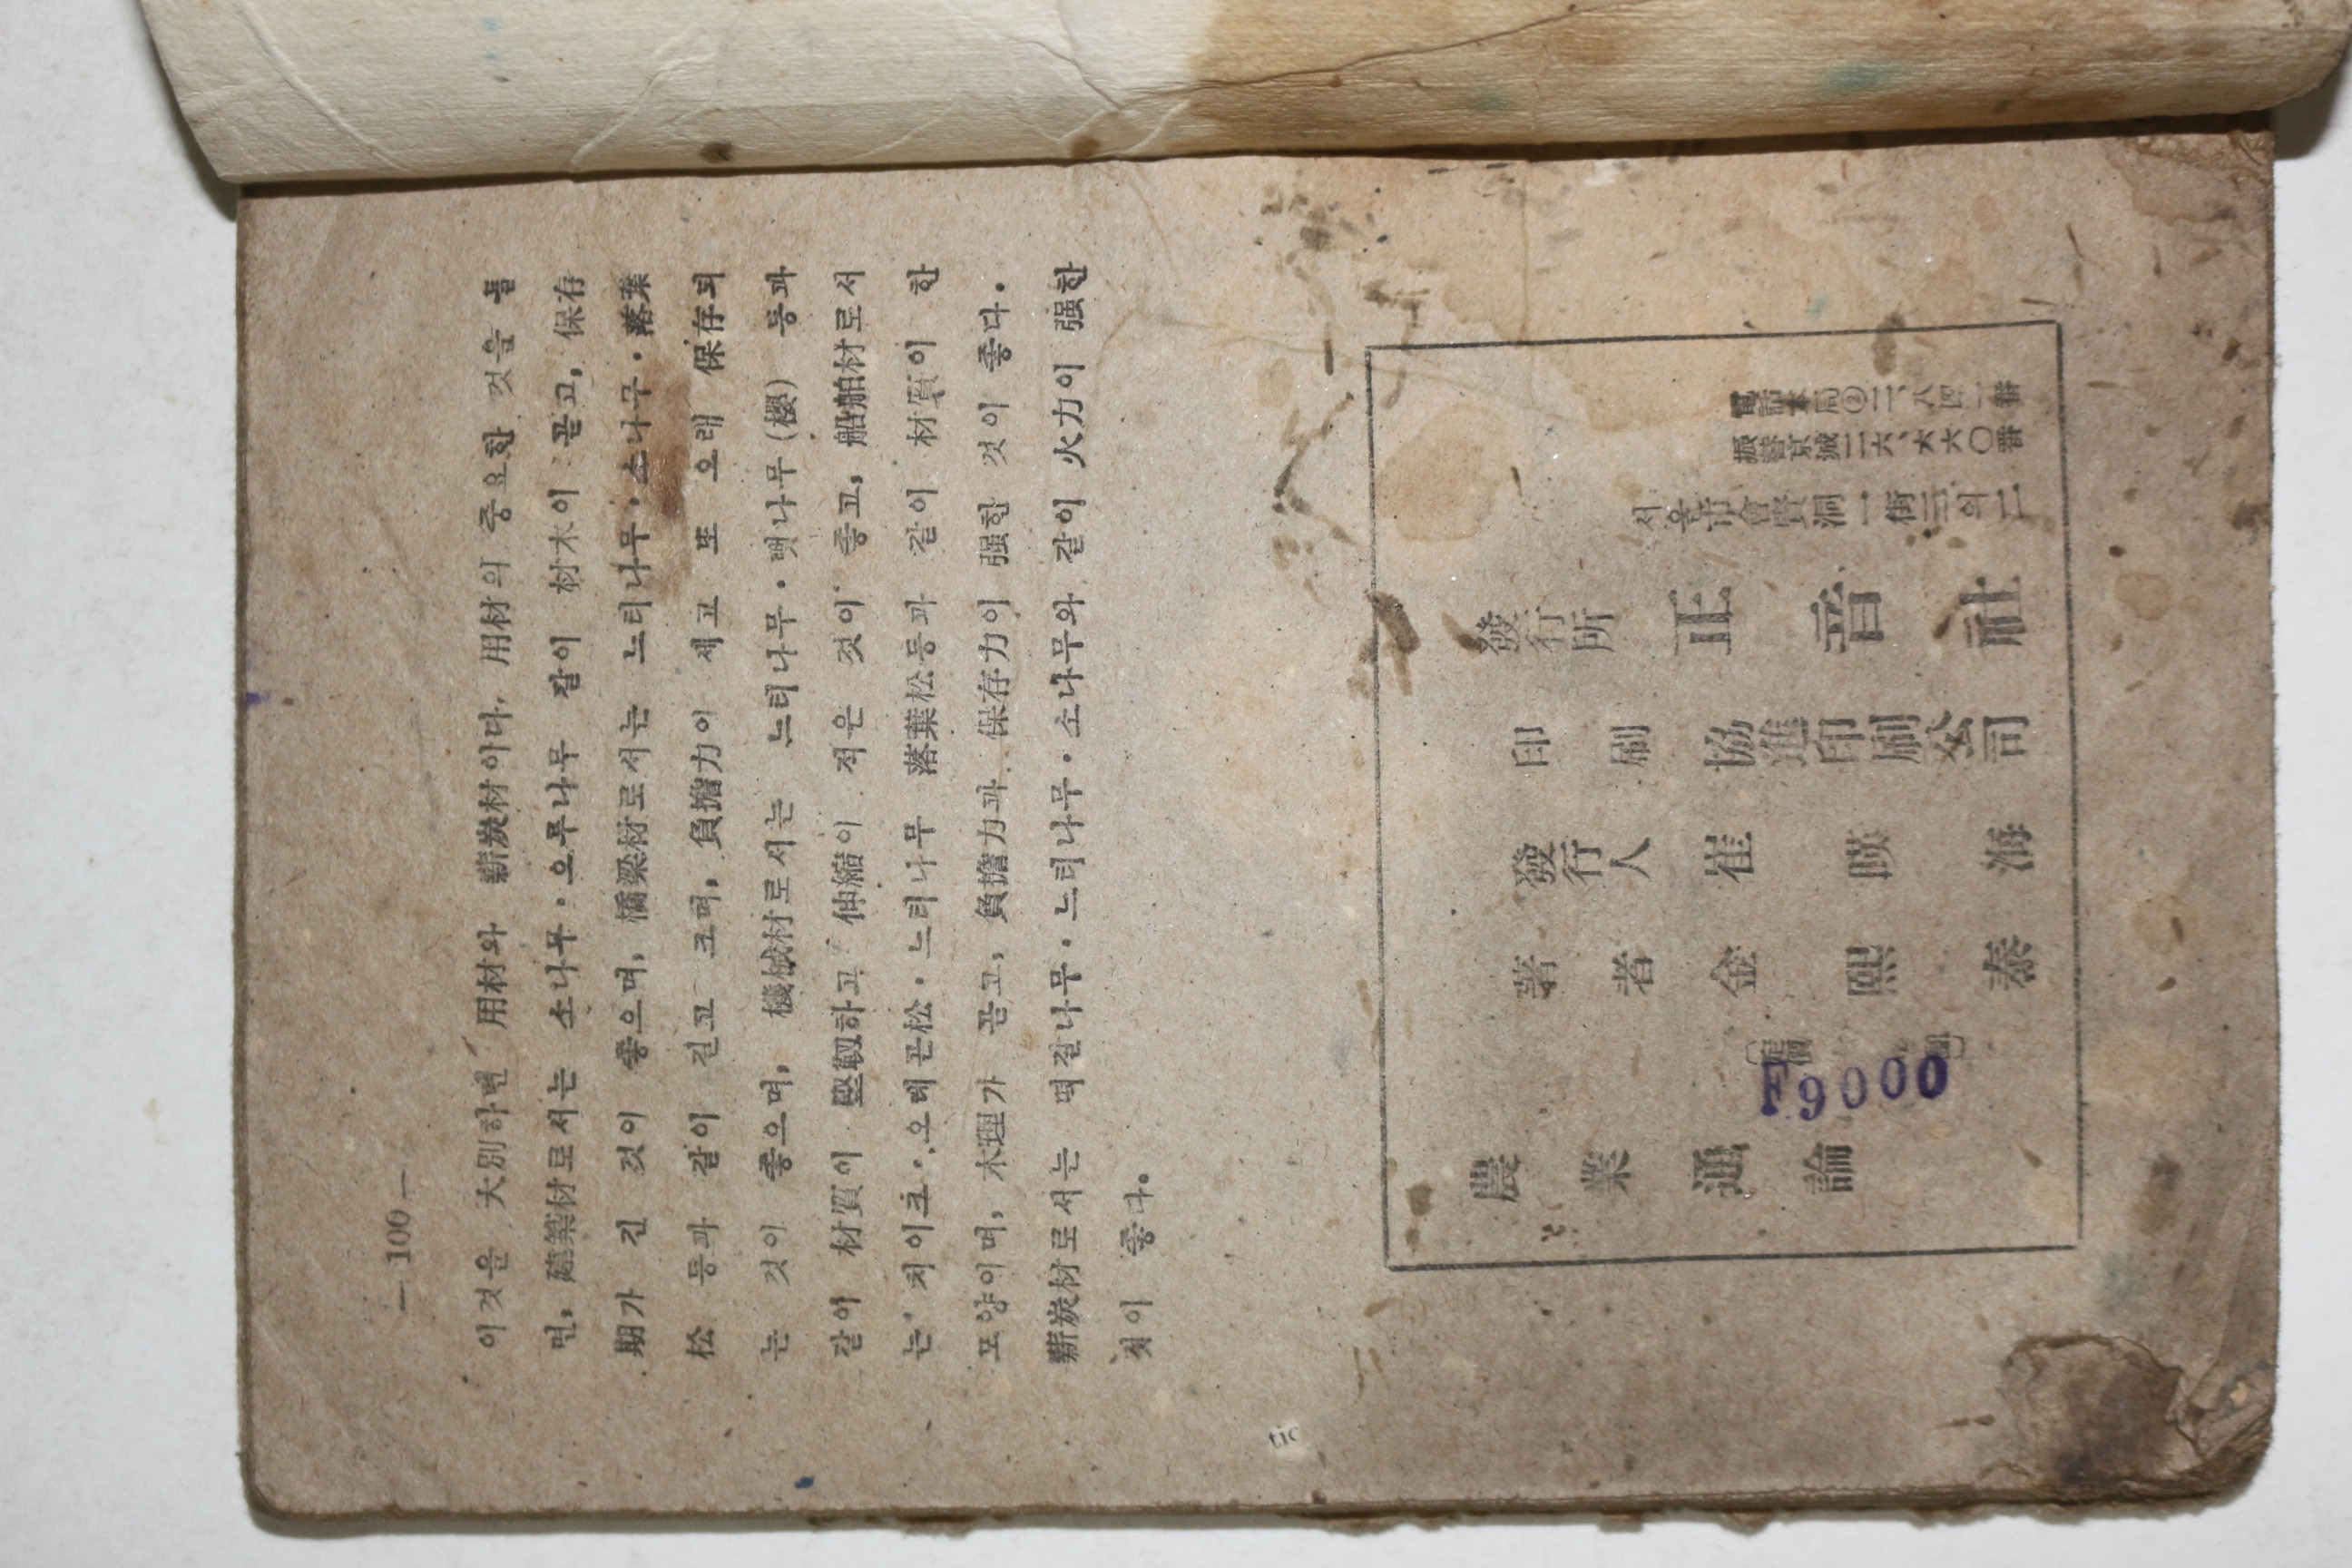 — 100 —
이것을 大別하면 用材와 薪炭材이다. 用材의 중요한 것을 들
면, 建築材로서는 소나무·오루나무 같이 材木이 곧고, 保存
期가 긴 것이 좋으며, 橋梁材로서는 느티나무·소나무·落葉
松 등과 같이 길고 크며, 負擔力이 세고 또 오래 保存되
는 것이 좋으며, 機械材로서는 느티나무·벗나무(櫻) 등과
같이 材質이 堅靱하고 伸縮이 적은 것이 좋고, 船舶材로서
는 치이크·오레곤松·느티나무 落葉松등과 같이 材質이 한
모양이며, 木理가 곧고, 負擔力과 保存力이 强한 것이 좋다.
薪炭材로서는 떡갈나무·느티나무·소나무와 같이 火力이 强한
것이 좋다.
農業通論
〔定價 圓〕
著者 金熙泰
發行人 崔暎海
印刷 協進印刷公司
發行所 正音社
서울市會賢洞一街三의二
振替京城二六、六六〇番
電話本局②二、八四二番